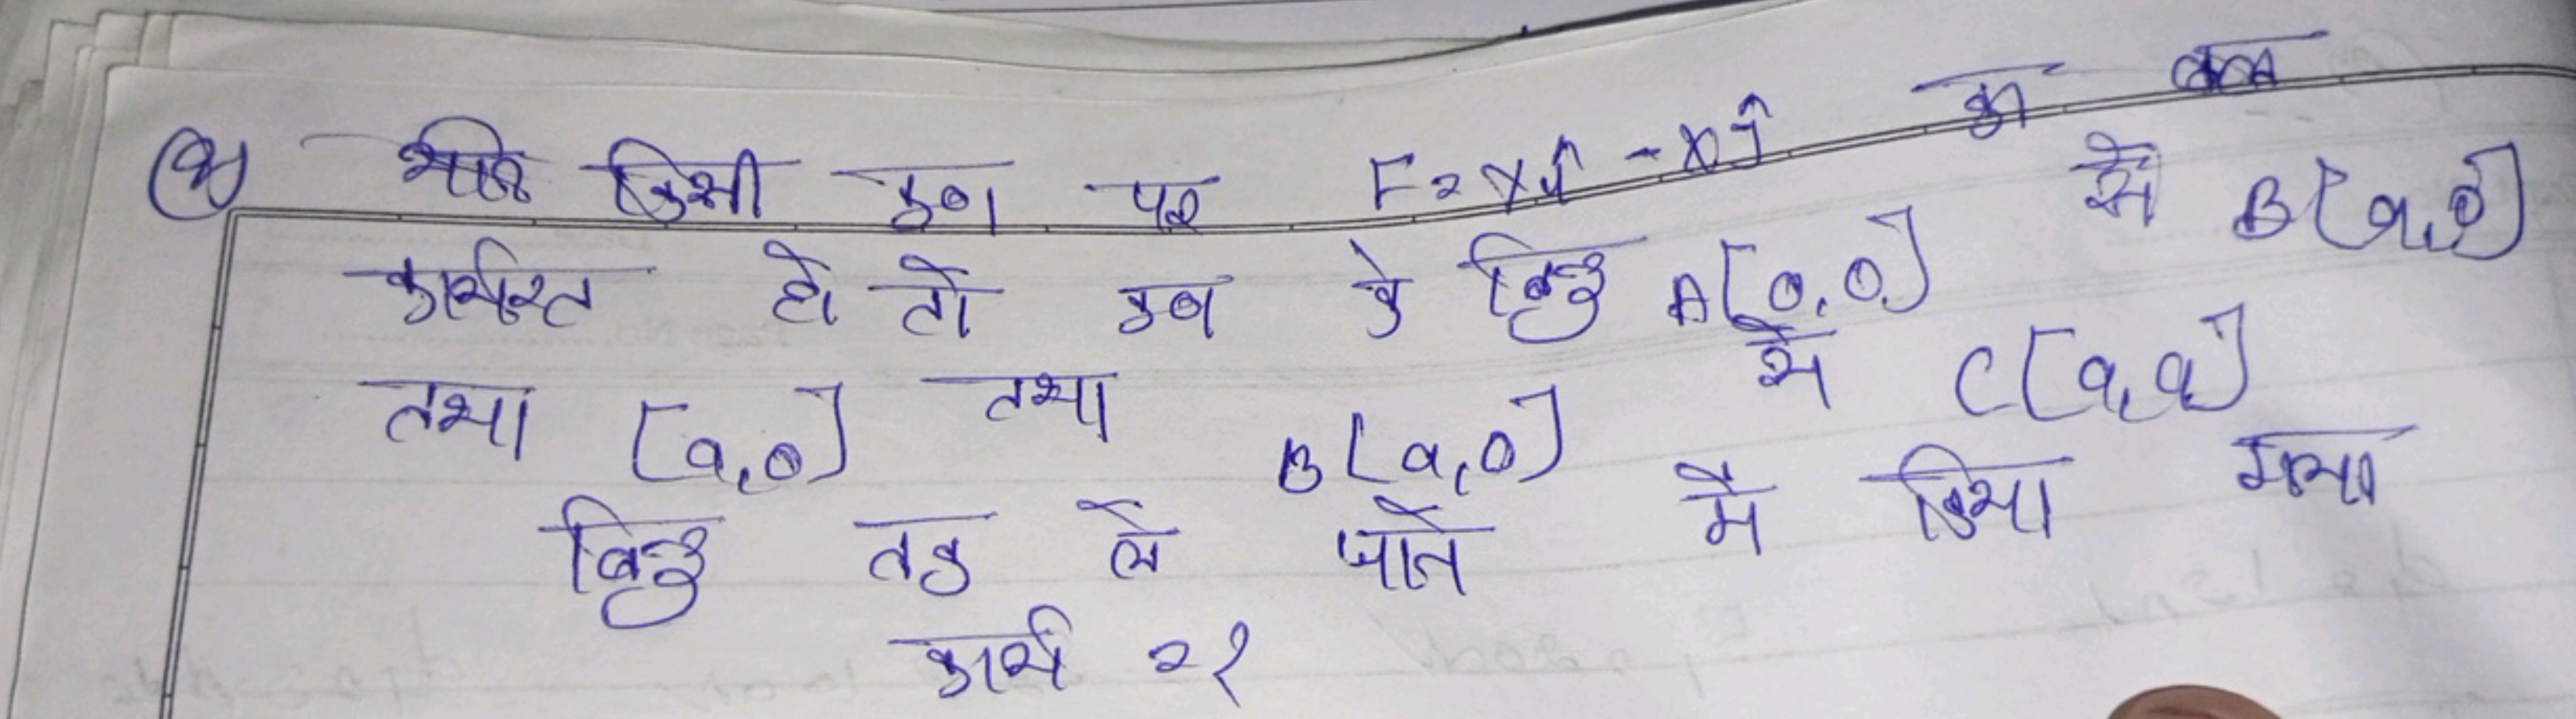 Q यदि किसी कण पर F = xyî - xĵ का बल
कार्यरत हो तो कण के बिन्दु A[0,0] से B[a,0]
तथा [a,0] तथा B[a,0] से C[a,a]
बिन्दु तक ले जाने मे किया गया
कार्य = ?